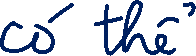 có thể